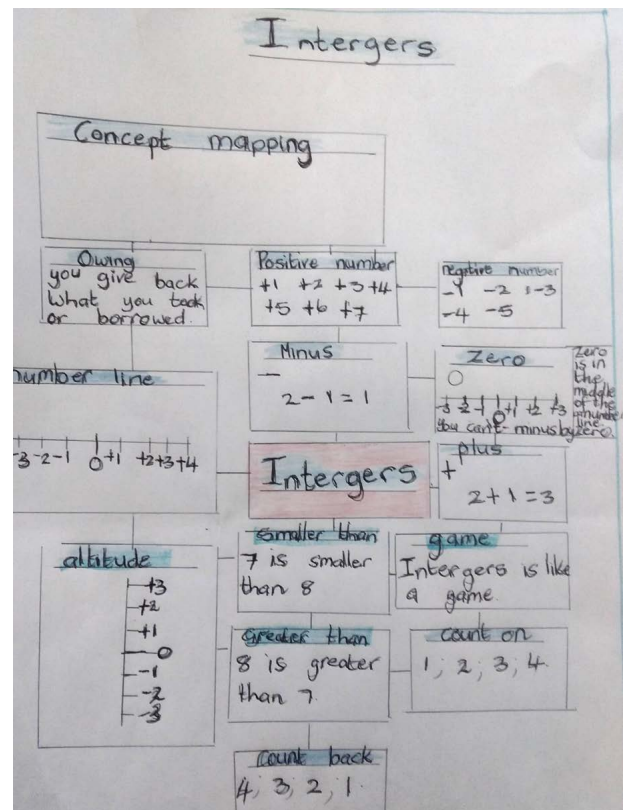 Intergers
Concept mapping
Owing
you give back
what you took
or borrowed.
Positive number
+1 +2 +3 +4
+5 +6 +7
negitive number
-1 -2 -3
-4 -5
Minus
-
2 - 1 = 1
Zero
0
-3 -2 -1 0 +1 +2 +3
You can't minus by zero.
Zero
is in
the
middle
of the
number
line.
number line
-3 -2 -1 0 +1 +2 +3 +4
Intergers
plus
+
2 + 1 = 3
altitude
+3
+2
+1
0
-1
-2
-3
smaller than
7 is smaller
than 8
game
Intergers is like
a game.
greater than
8 is greater
than 7.
count on
1; 2; 3; 4.
count back
4; 3; 2; 1.